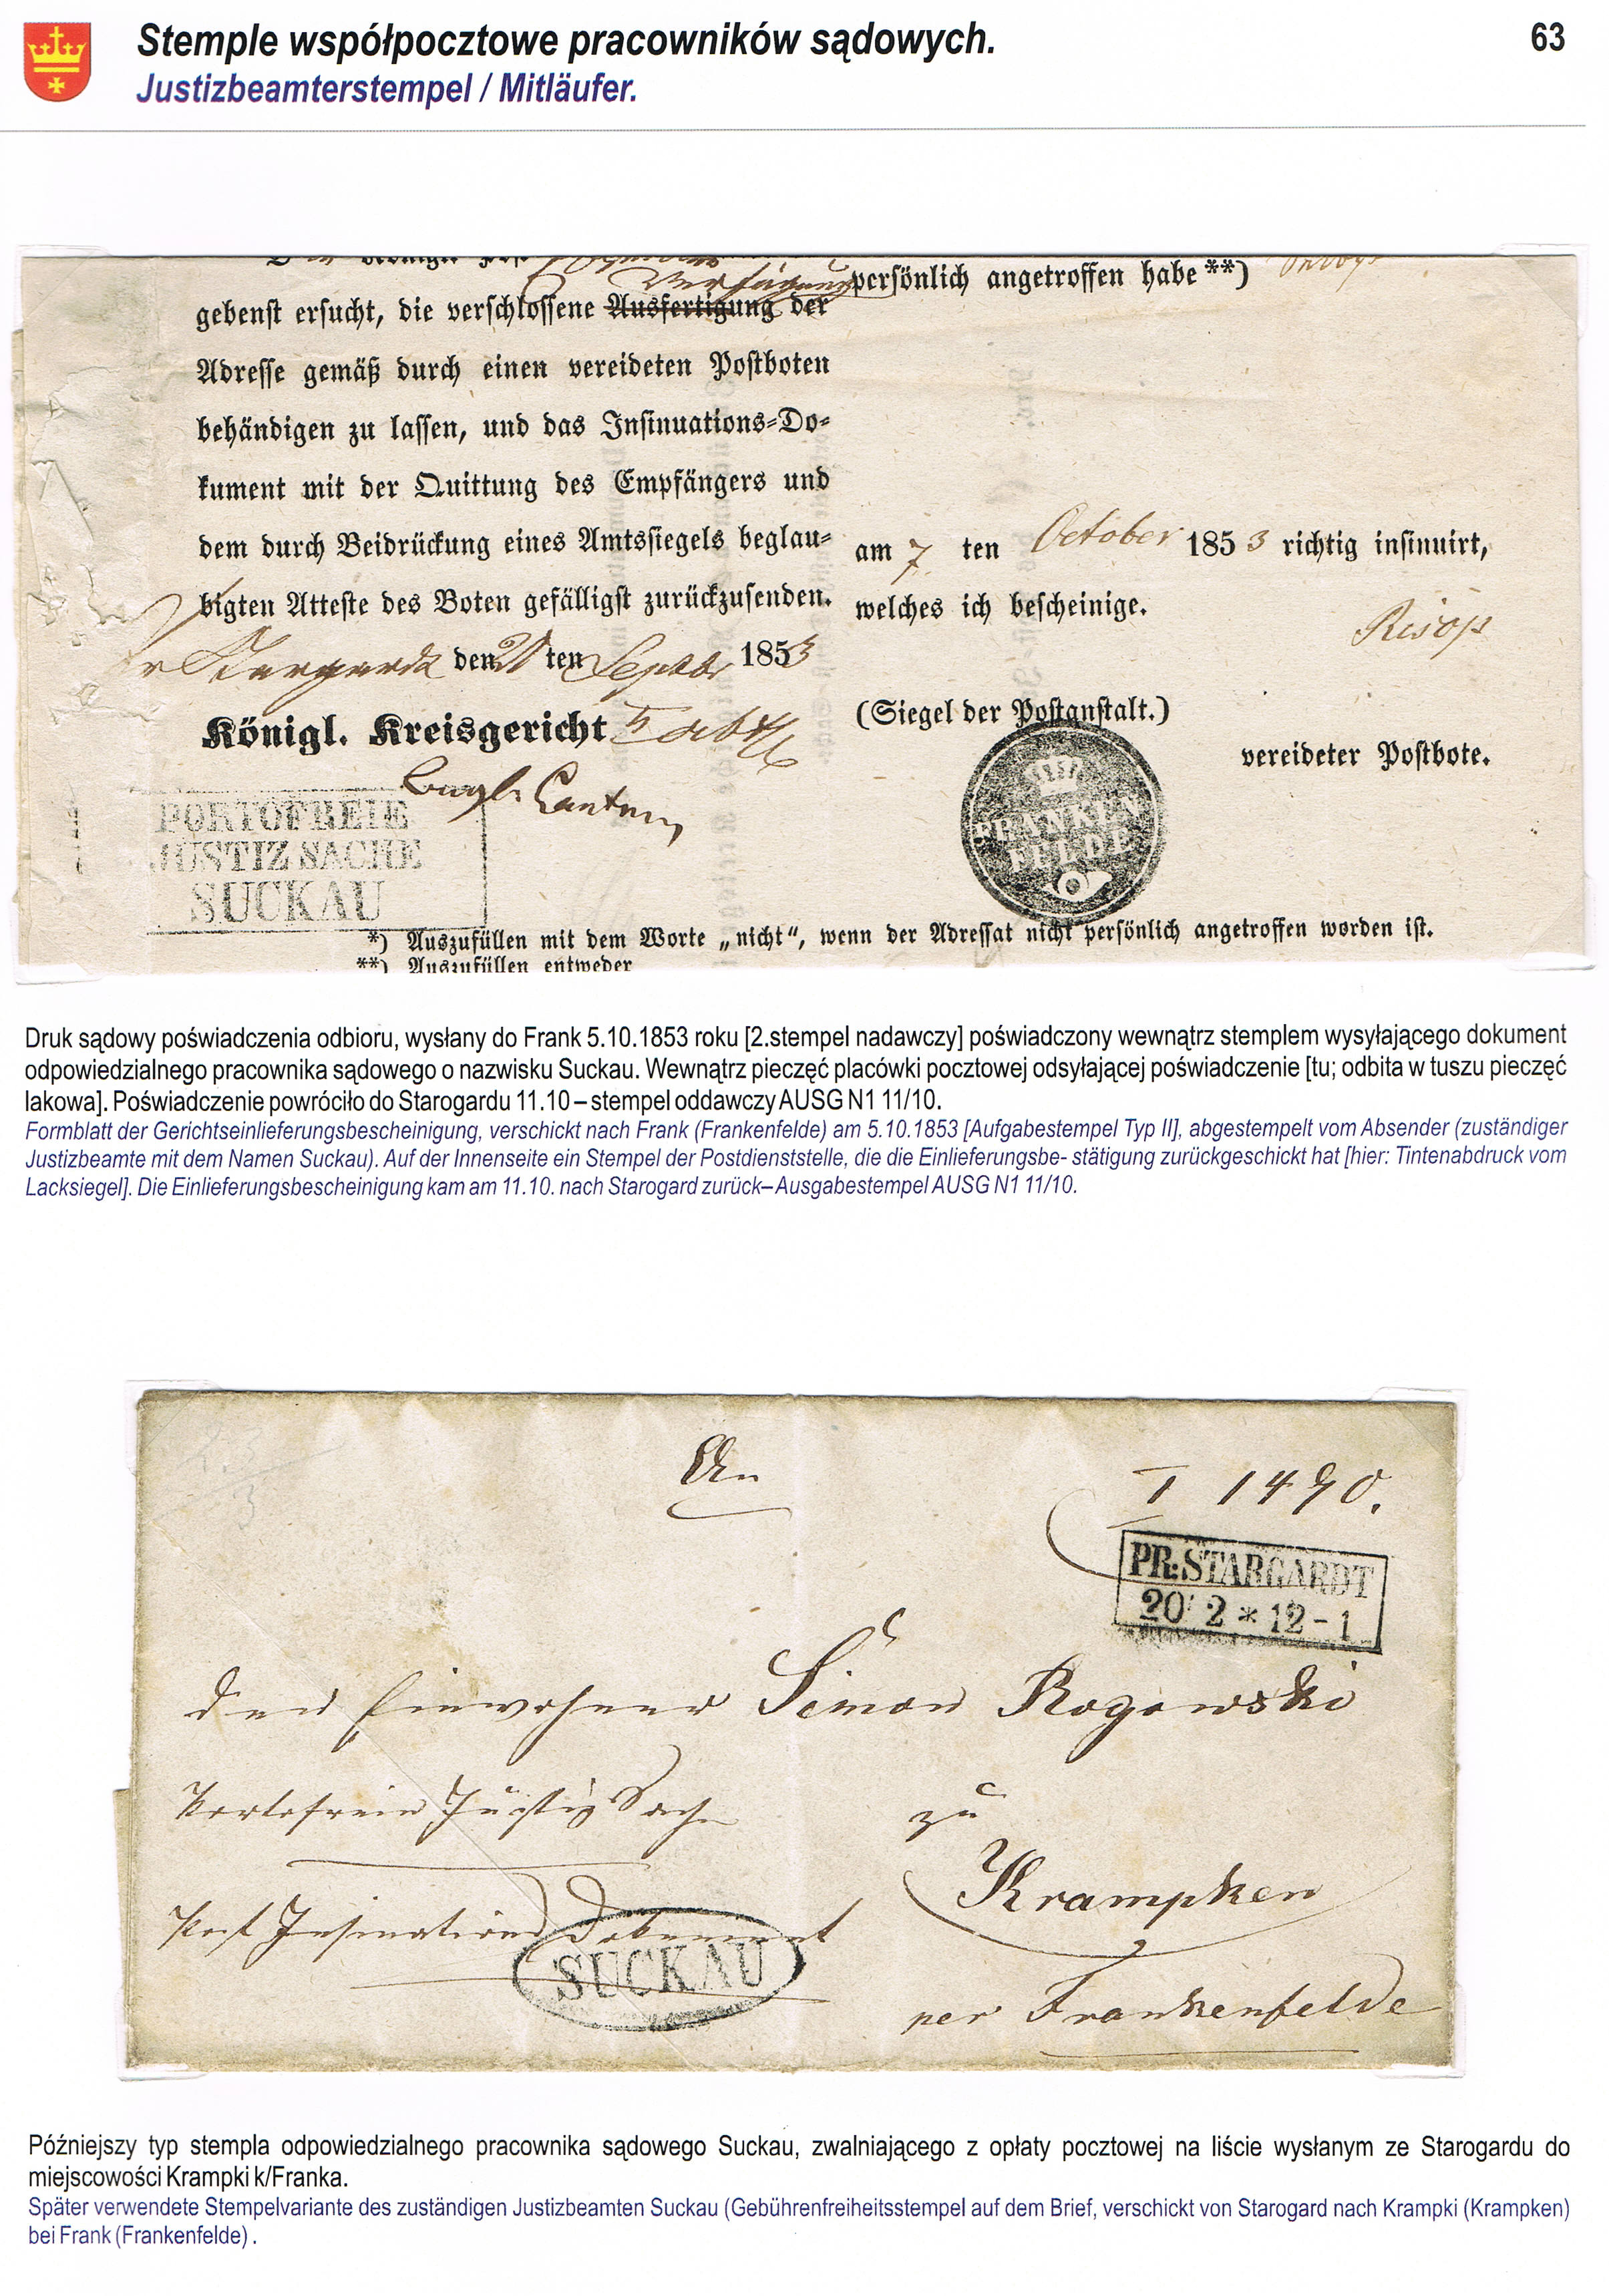 Stemple współpocztowe pracowników sądowych.
63
Justizbeamterstempel / Mitläufer.
Verfügung
persönlich angetroffen habe **)
gebenst ersucht, die verschlossene Ausfertigung der
Adresse gemäß durch einen vereideten Postboten
behändigen zu lassen, und das Insinuations-Do-
kument mit der Quittung des Empfängers und
dem durch Beidrückung eines Amtssiegels beglau-
bigten Atteste des Boten gefälligst zurückzusenden.
Stargardt den ten Septbr 1853
Königl. Kreisgericht
PORTOFREIE
JUSTIZ SACHE
SUCKAU
am 7 ten October 1853 richtig insinuirt,
welches ich bescheinige.
Risop
(Siegel der Postanstalt.)
vereideter Postbote.
FRANKEN
FELDE
*) Auszufüllen mit dem Worte „nicht“, wenn der Adressat nicht persönlich angetroffen worden ist.
**) Auszufüllen entweder
Druk sądowy poświadczenia odbioru, wysłany do Frank 5.10.1853 roku [2.stempel nadawczy] poświadczony wewnątrz stemplem wysyłającego dokument
odpowiedzialnego pracownika sądowego o nazwisku Suckau. Wewnątrz pieczęć placówki pocztowej odsyłającej poświadczenie [tu; odbita w tuszu pieczęć
lakowa]. Poświadczenie powróciło do Starogardu 11.10 – stempel oddawczy AUSG N1 11/10.
Formblatt der Gerichtseinlieferungsbescheinigung, verschickt nach Frank (Frankenfelde) am 5.10.1853 [Aufgabestempel Typ II], abgestempelt vom Absender (zuständiger
Justizbeamte mit dem Namen Suckau). Auf der Innenseite ein Stempel der Postdienststelle, die die Einlieferungsbe- stätigung zurückgeschickt hat [hier: Tintenabdruck vom
Lacksiegel]. Die Einlieferungsbescheinigung kam am 11.10. nach Starogard zurück– Ausgabestempel AUSG N1 11/10.
An
I 1490.
PR: STARGARDT
20 2 * 12 - 1
den Einwohner Simon Rogowski
Portofreie Justiz Sache
zu
Krampken
Post Insinuations Dokument
SUCKAU
per Frankenfelde
Późniejszy typ stempla odpowiedzialnego pracownika sądowego Suckau, zwalniającego z opłaty pocztowej na liście wysłanym ze Starogardu do
miejscowości Krampki k/Franka.
Später verwendete Stempelvariante des zuständigen Justizbeamten Suckau (Gebührenfreiheitsstempel auf dem Brief, verschickt von Starogard nach Krampki (Krampken)
bei Frank (Frankenfelde) .